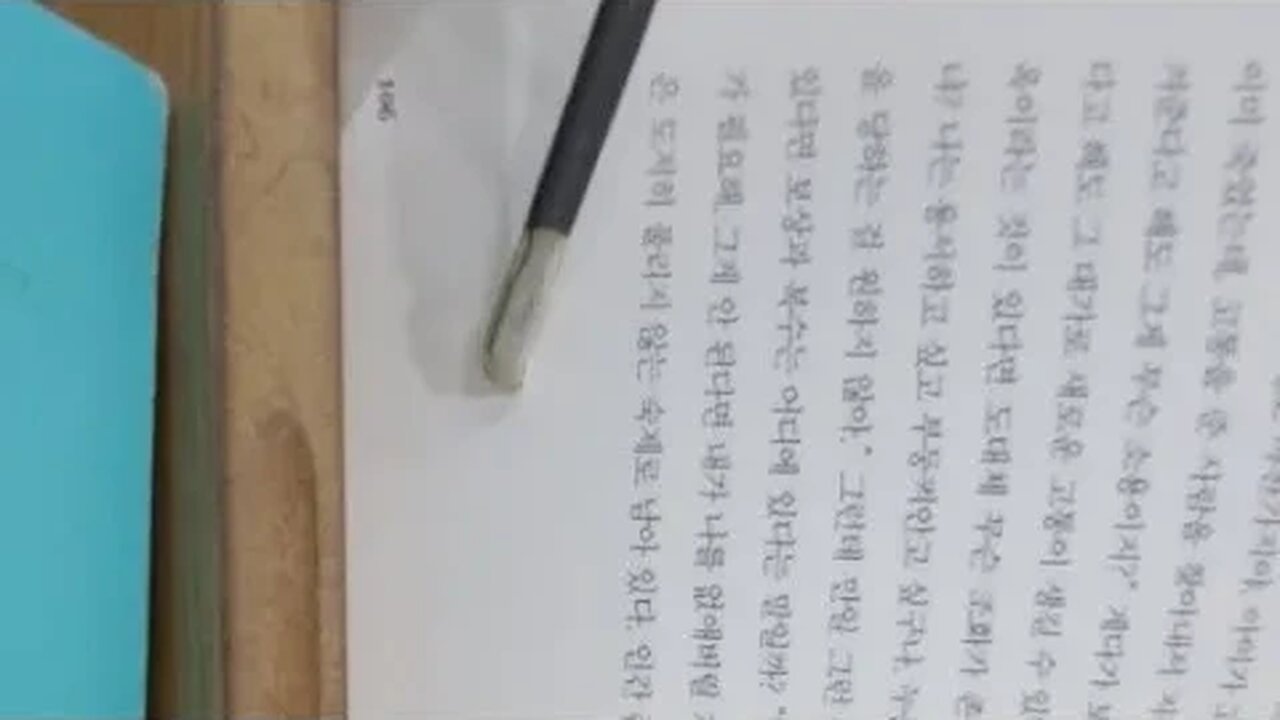 이미 죽었는데, 고통을 준 사람을 찾아내서
준다고 해도 그게 무슨 소용이지?” 게다가
다고 해도 그 대가로 새로운 고통이 생길 수 있
옥이라는 것이 있다면 도대체 무슨 조화가 존
나? 나는 용서하고 싶고 부둥켜안고 싶구나, 누
을 당하는 걸 원하지 않아.” 그런데 만일 그런
있다면 보상과 복수는 어디에 있다는 말인가? “
가 필요해. 그게 안 된다면 내가 나를 없애버릴
은 도저히 풀리지 않는 숙제로 남아 있다. 인간
106